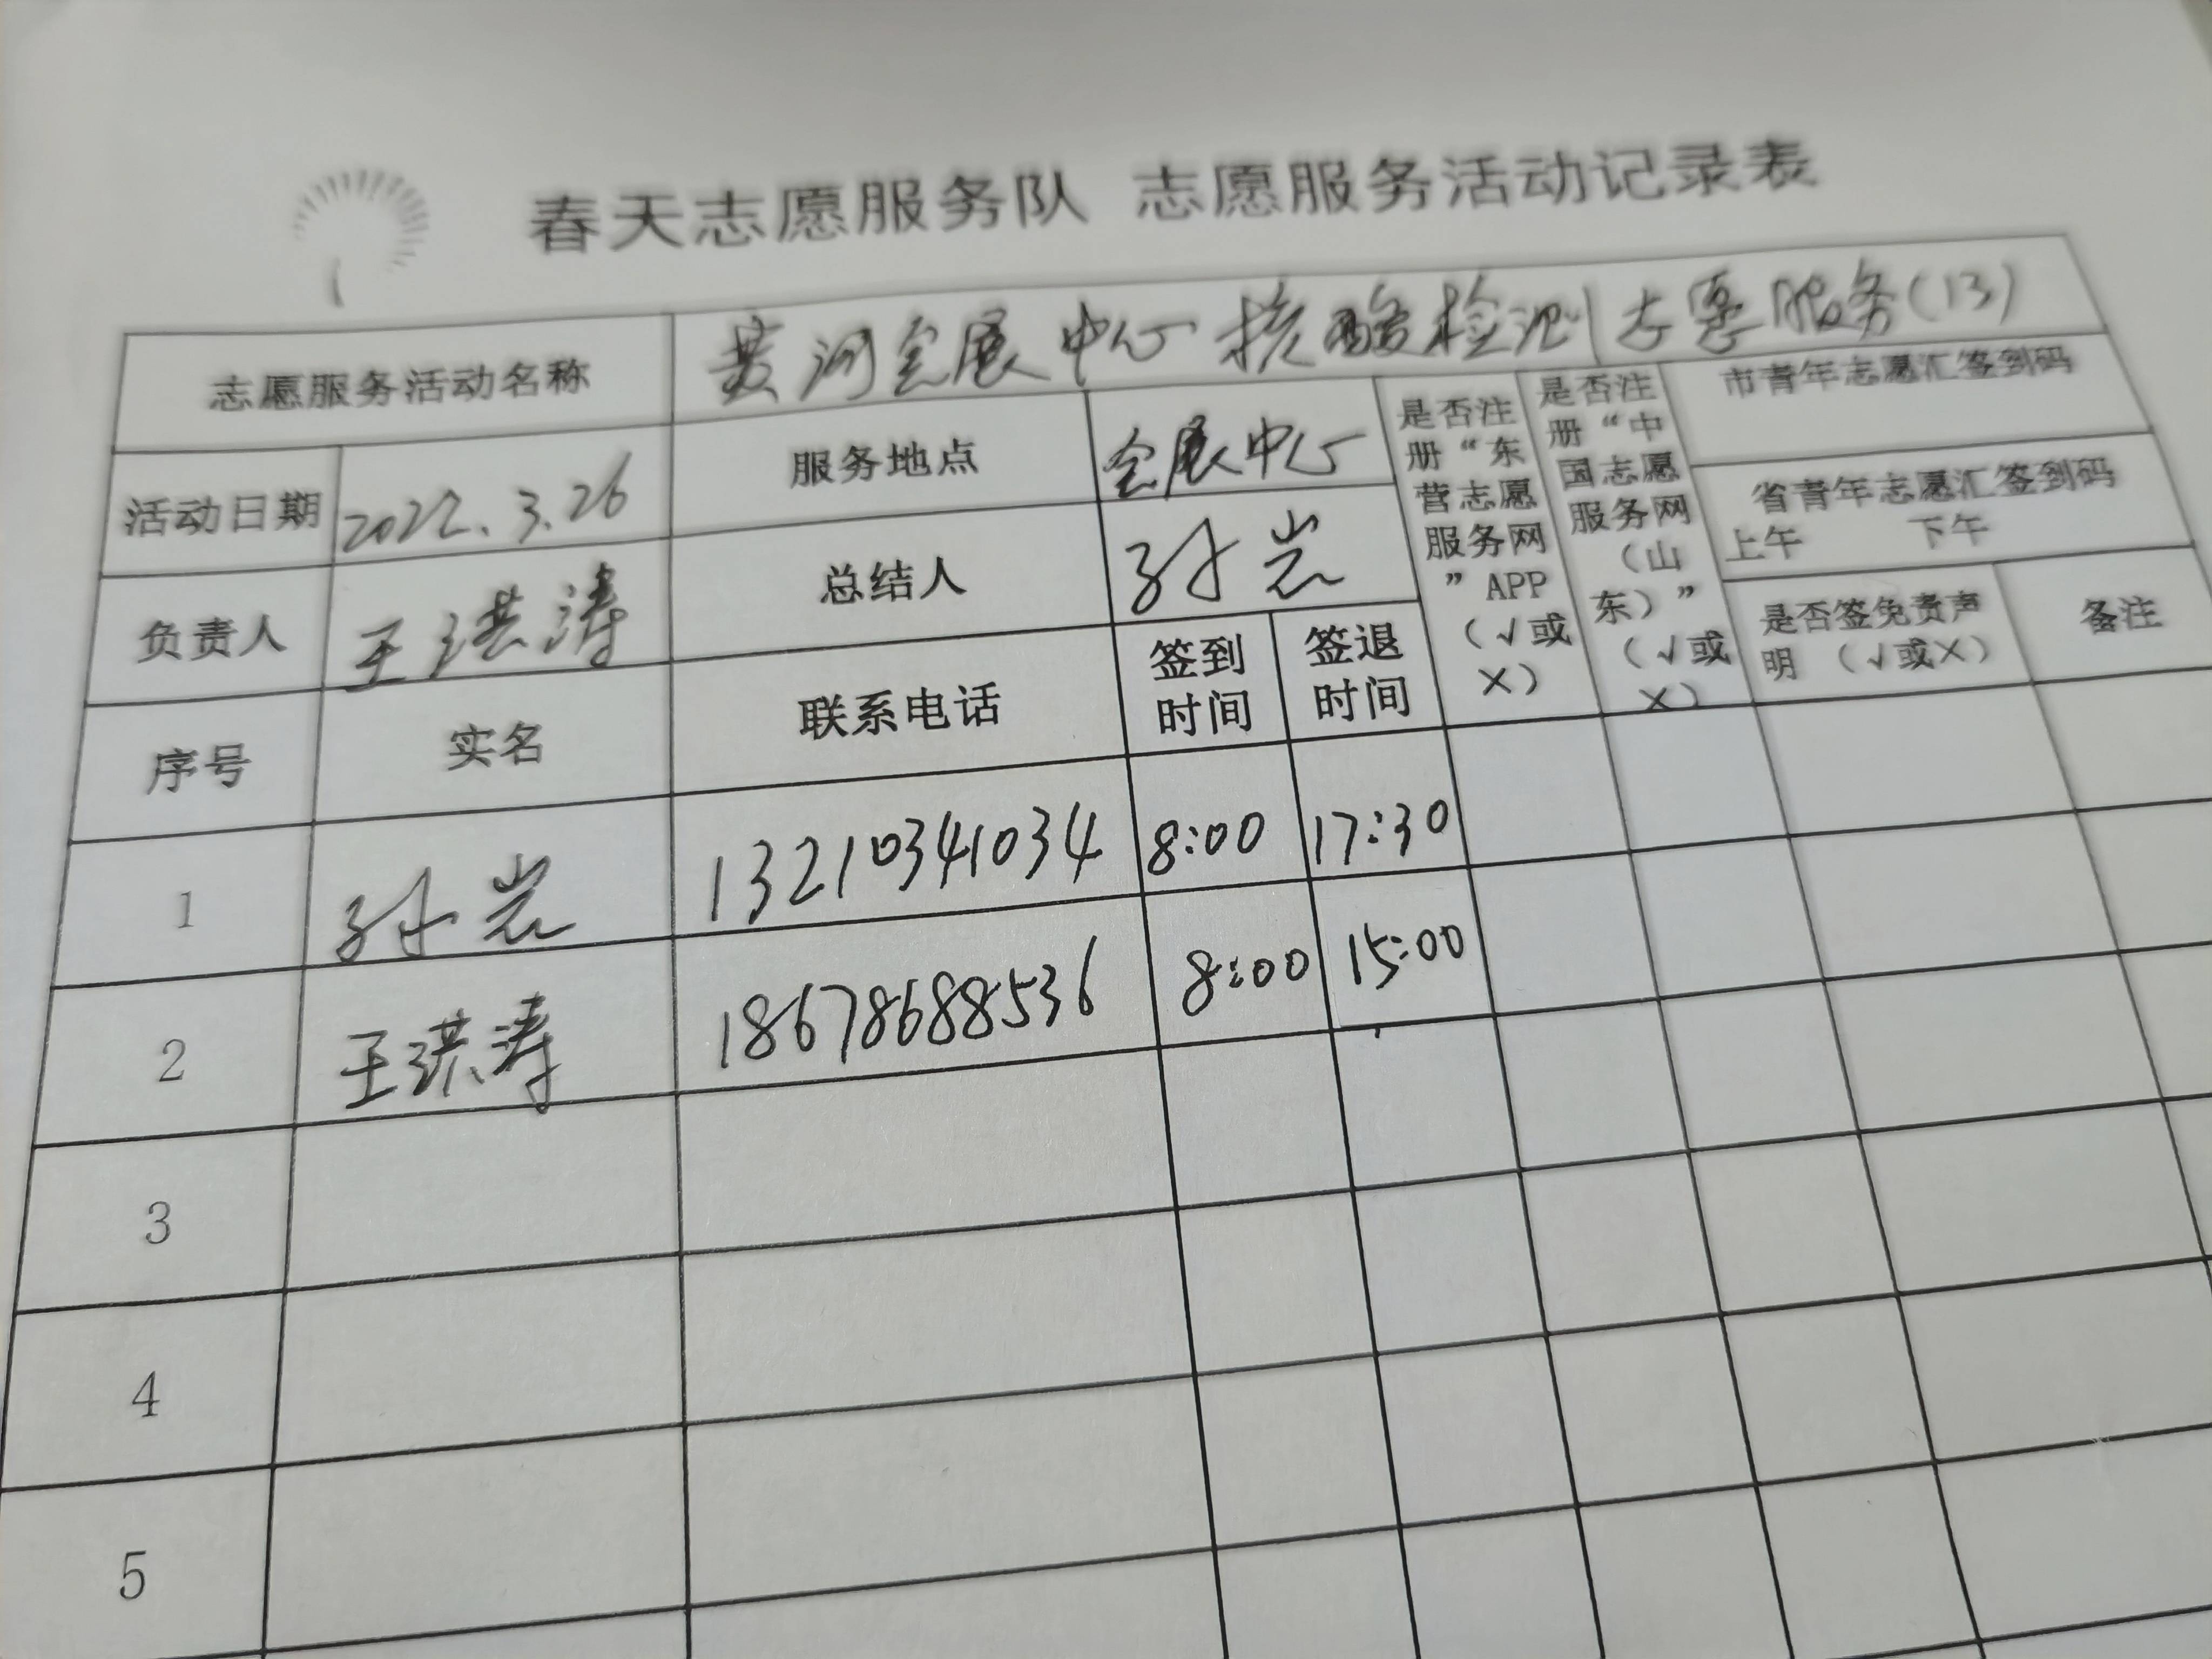 春天志愿服务队 志愿服务活动记录表
志愿服务活动名称 黄河会展中心核酸检测志愿服务(13)
活动日期 2022.3.26 服务地点 会展中心
是否注册“东营志愿服务网”APP(√或×)
是否注册“中国志愿服务网(山东)”(√或×)
市青年志愿汇签到码
省青年志愿汇签到码
上午 下午
负责人 王洪涛 总结人 孙岩
是否签免责声明 (√或×) 备注
序号 实名 联系电话 签到时间 签退时间
1 孙岩 13210341034 8:00 17:30
2 王洪涛 18678688536 8:00 15:00
3
4
5